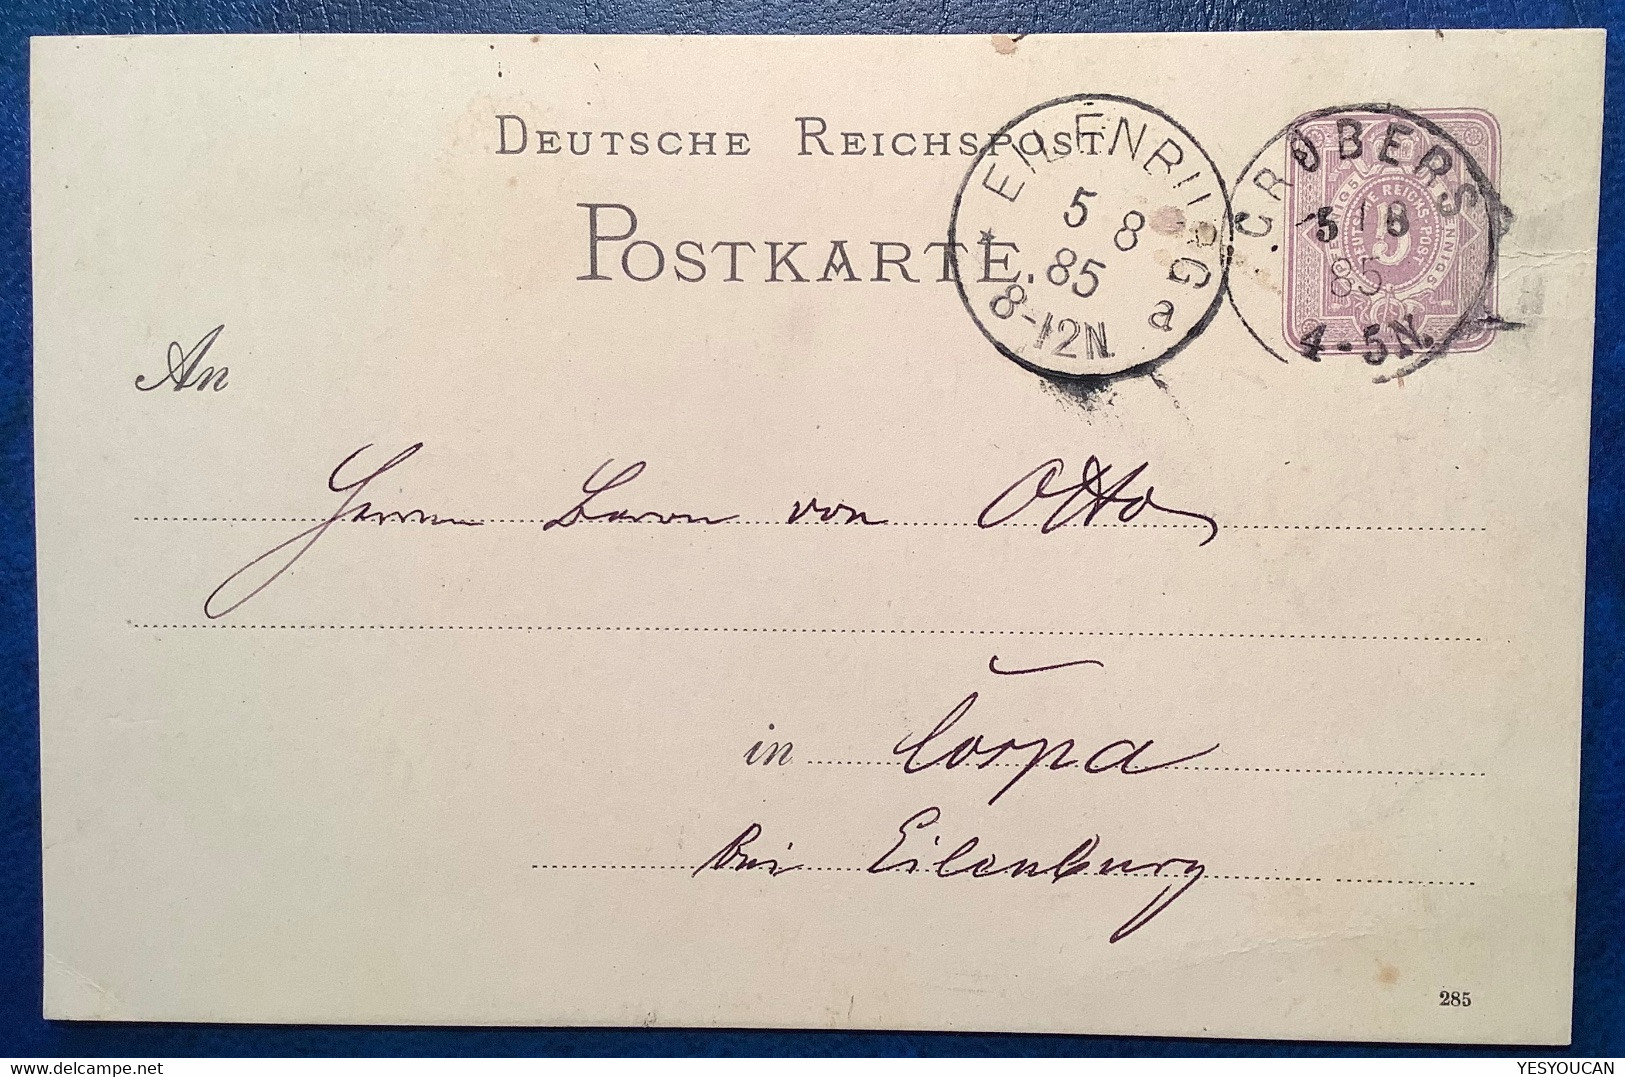 DEUTSCHE REICHSPOST.
POSTKARTE.
EILENBURG
5 8
85
8-12N
a
GRÖBERS
5 8
85
4-5N.
DEUTSCHE REICHS-POST
5
An
Herrn Baron von Otto
in
bei Eilenburg
285
delcampe.net
YESYOUCAN